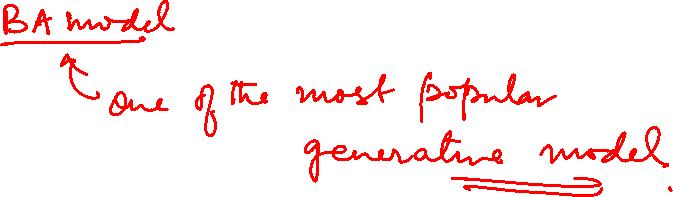 BA model
one of the most popular
generative model.